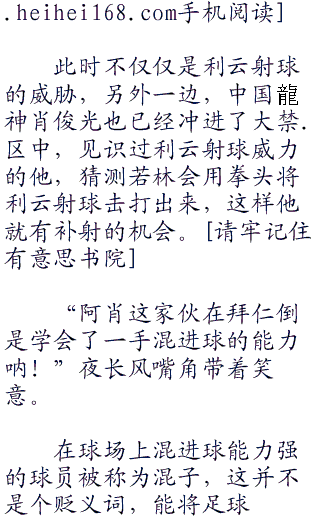 .heihei168.com手机阅读]
此时不仅仅是利云射球
的威胁，另外一边，中国龍
神肖俊光也已经冲进了大禁.
区中，见识过利云射球威力
的他，猜测若林会用拳头将
利云射球击打出来，这样他
就有补射的机会。[请牢记住
有意思书院]
“阿肖这家伙在拜仁倒
是学会了一手混进球的能力
呐！”夜长风嘴角带着笑
意。
在球场上混进球能力强
的球员被称为混子，这并不
是个贬义词，能将足球